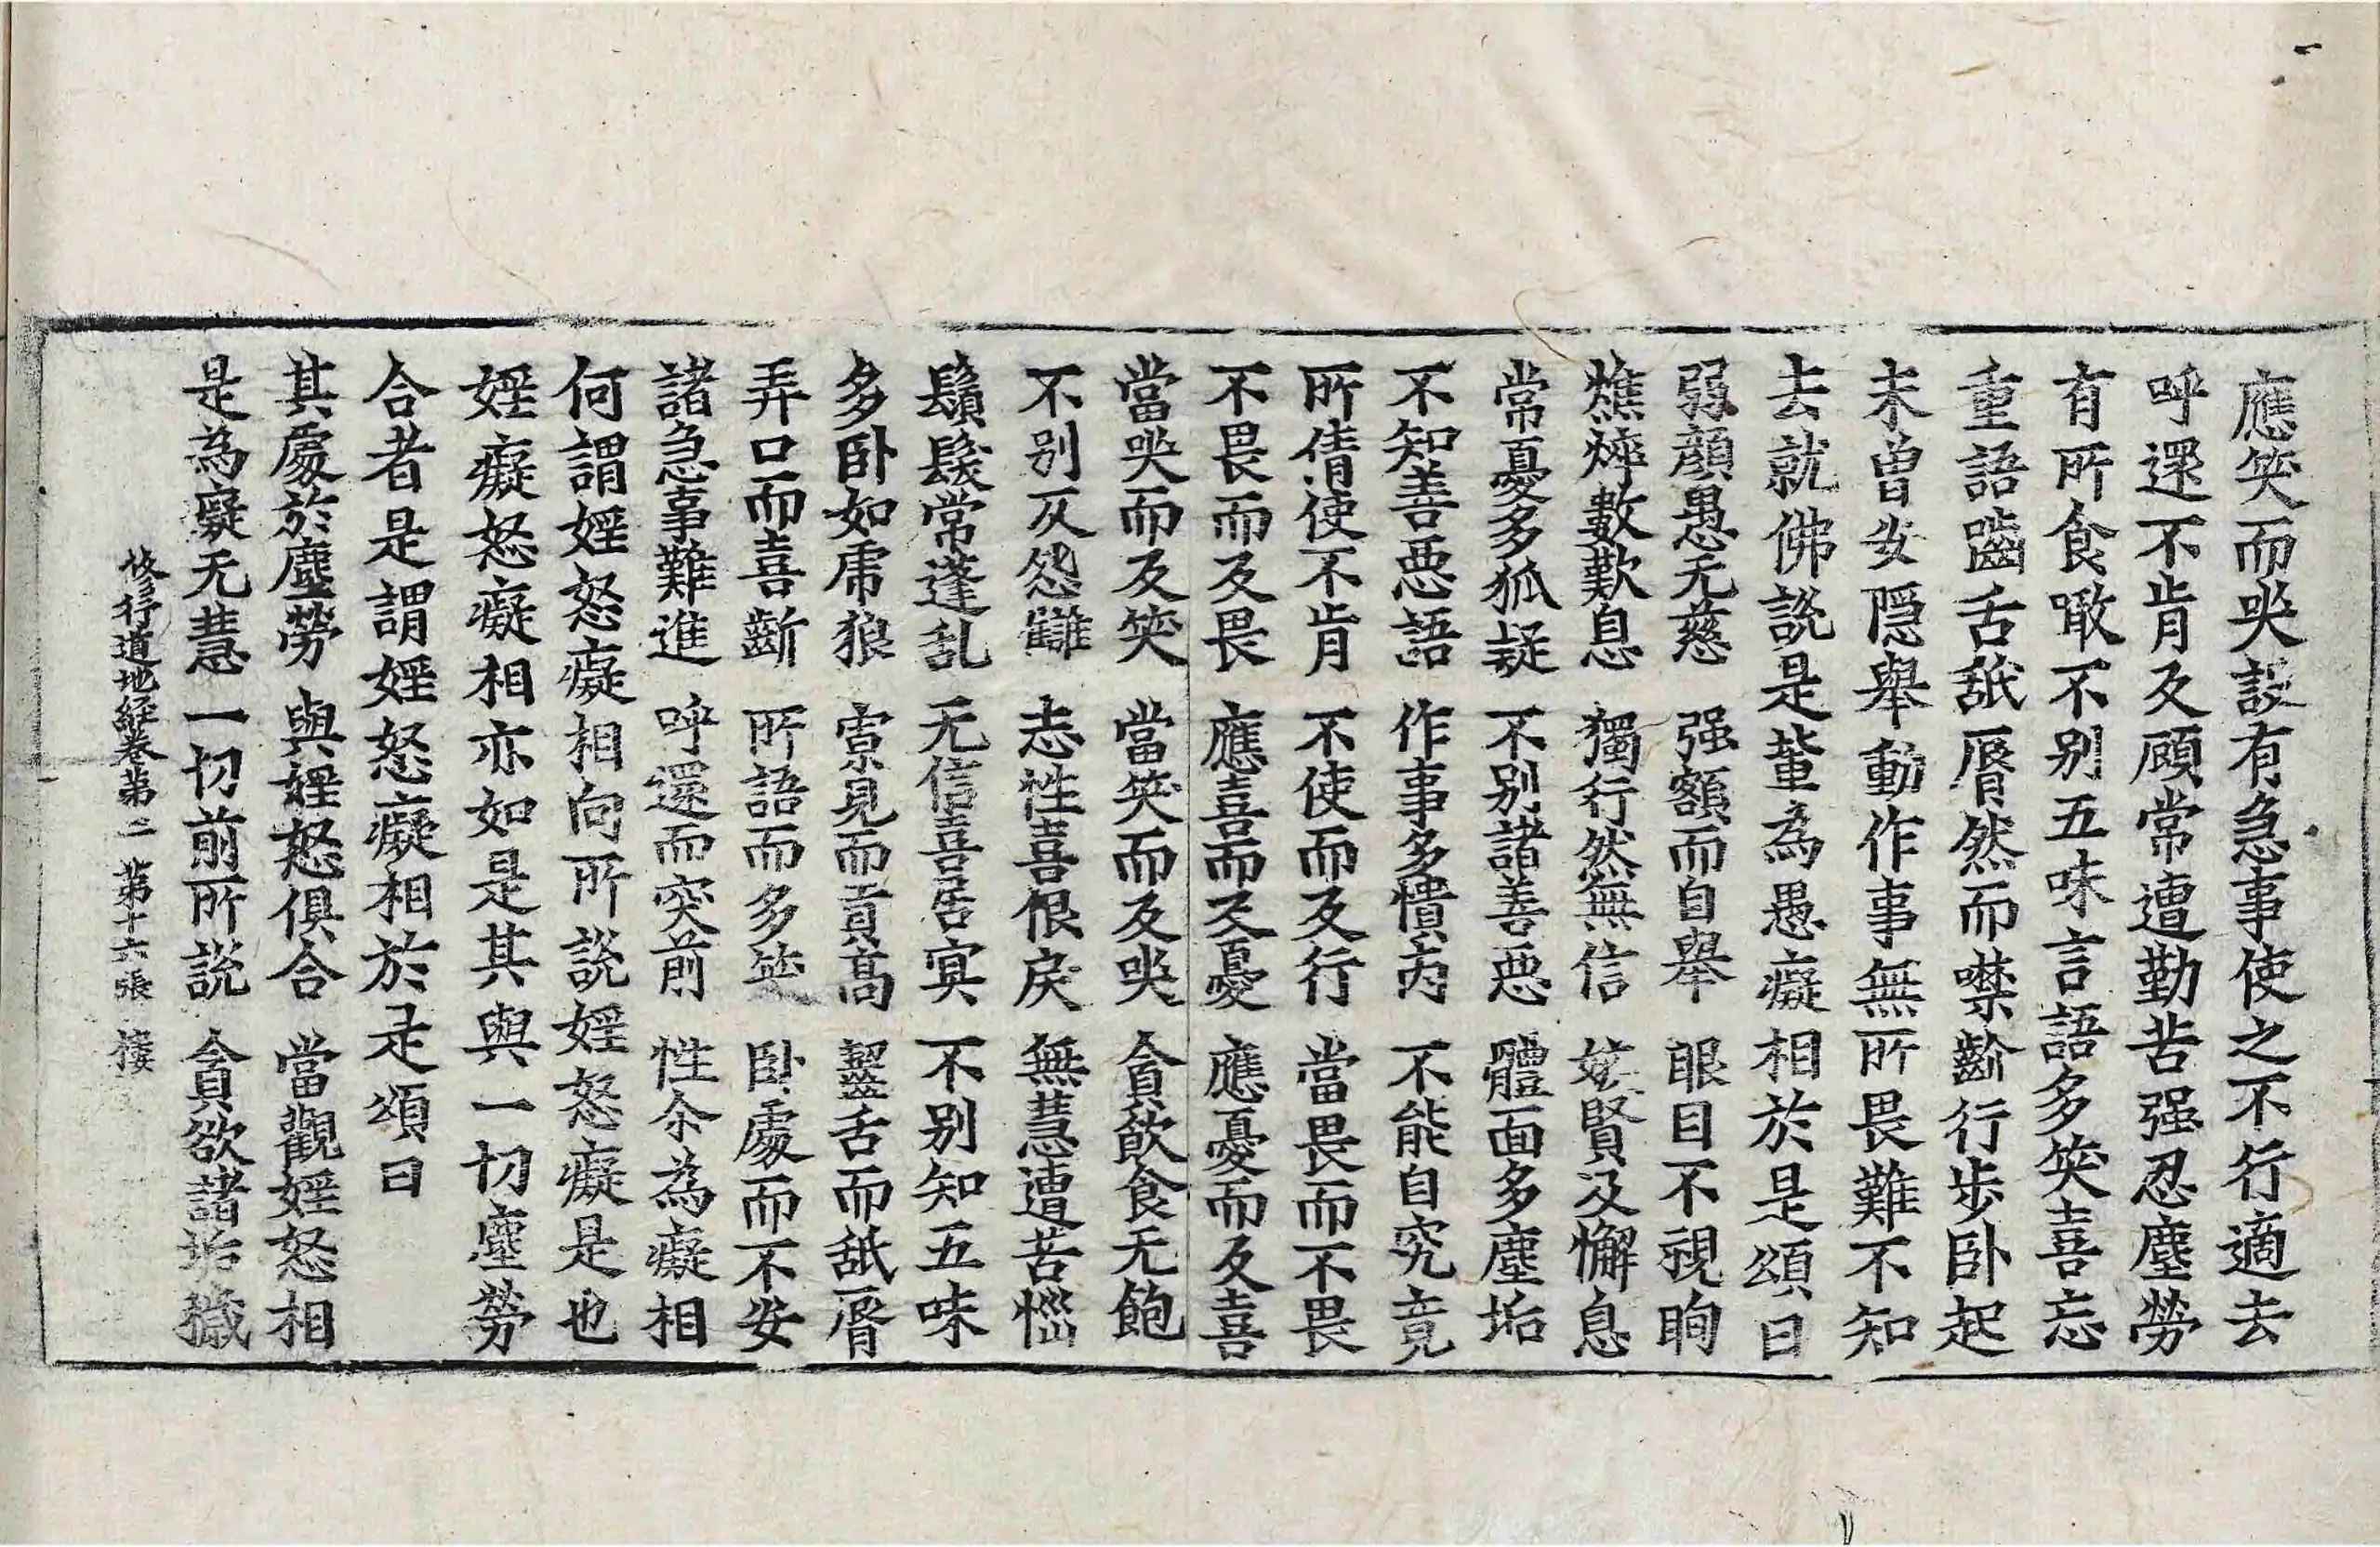 應笑而哭設有急事使之不行適去
呼還不肯反顧常遭勤苦强忍塵勞
有所食噉不别五味言語多笑喜忘
重語嚙舌舐脣然而噤齘行步卧起
未曾安隱舉動作事無所畏難不知
去就佛說是軰為愚癡相於是頌曰
弱顔愚无慈　强額而自舉　眼目不視眴
燋悴數歎息　獨行然無信　妬賢及懈息
常憂多狐疑　不别諸善惡　體面多塵垢
不知善惡語　作事多憒丙　不能自究竟
所倩使不肯　不使而反行　當畏而不畏
不畏而反畏　應喜而反憂　應憂而反喜
當哭而反笑　當笑而反哭　貪飲食无飽
不别仄怨讎　志性喜很戾　無慧遭苦惱
鬚髮常蓬乱　无信喜居寞　不别知五味
多卧如虎狼　窓見而貢髙　齧舌而舐脣
弄口而喜齘　所語而多笑　卧處而不安
諸急事難進　呼還而突前　性尒為癡相
何謂婬怒癡相向所說婬怒癡是也
婬癡怒癡相亦如是其與一切塵勞
合者是謂婬怒癡相於是頌曰
其處於塵勞　與婬怒俱合　當觀婬怒相
是為癡无慧　一切前所說　貪欲諸垢穢
修行道地經卷第二　第十六張　棲